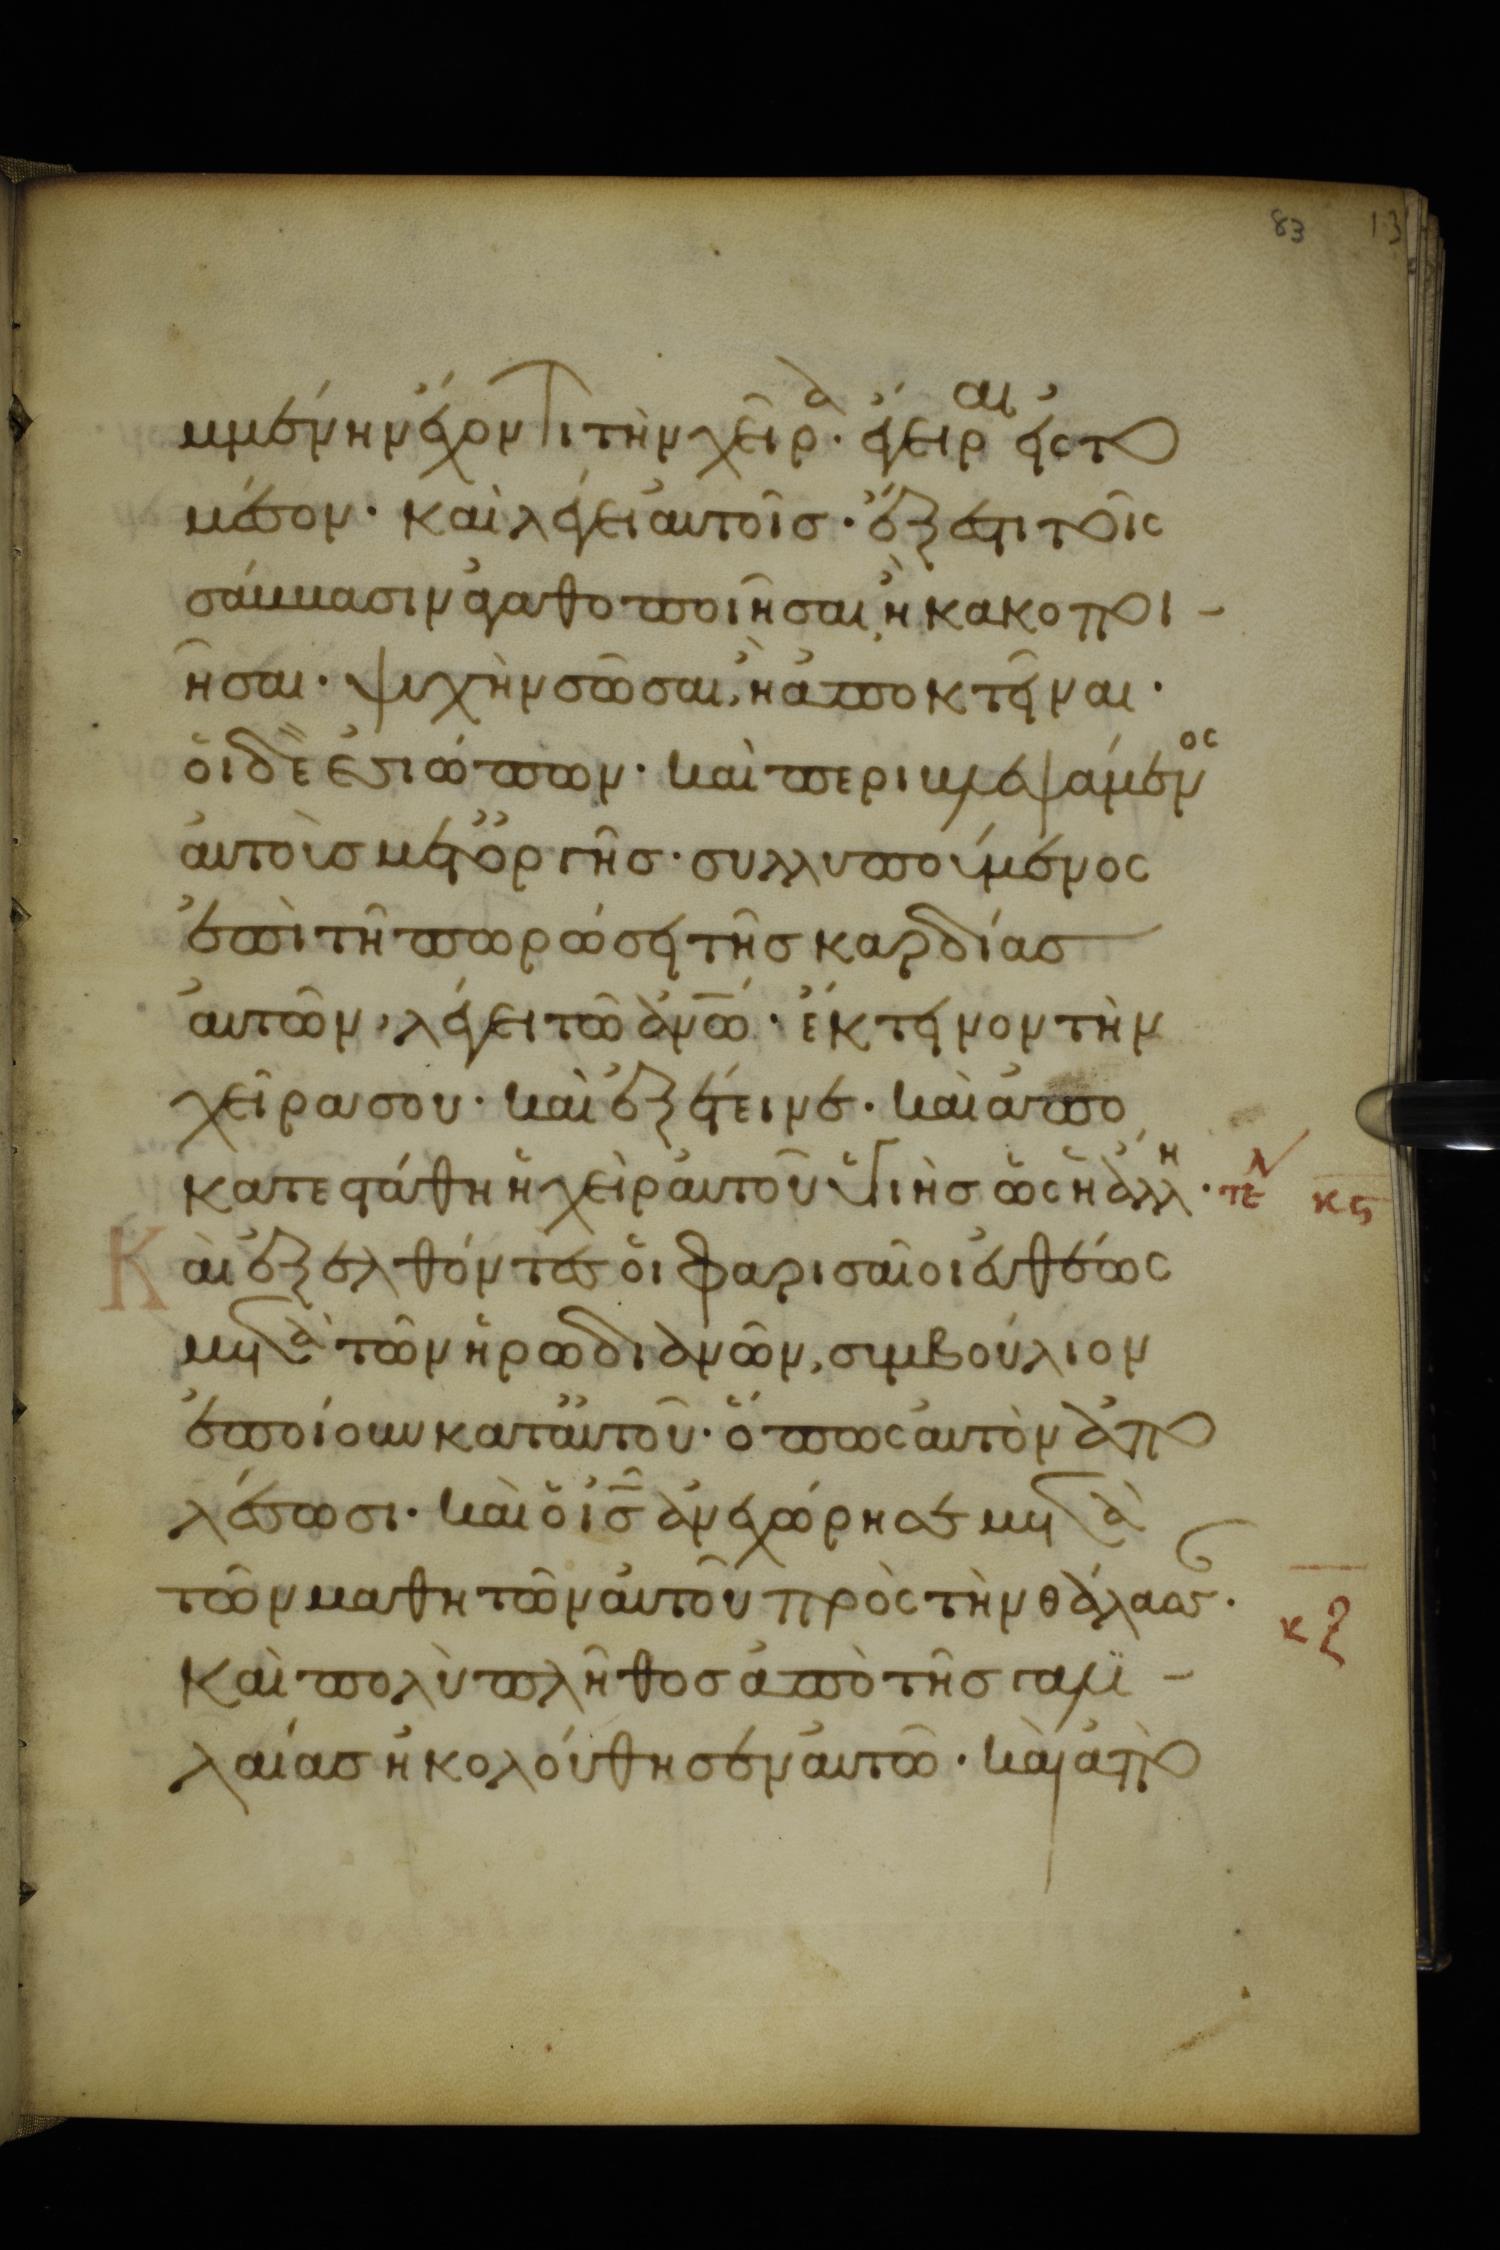 83 13
μμένην ἔχοντι τὴν χεῖρα· ἔγειραι εἰς τὸ
μέσον· καὶ λέγει αὐτοῖς· ἔξεστι τοῖς
σάββασιν ἀγαθοποιῆσαι, ἢ κακοποι-
ῆσαι· ψυχὴν σῶσαι, ἢ ἀποκτεῖναι·
οἱ δὲ ἐσιώπων· καὶ περιβλεψάμενος
αὐτοὺς μετ' ὀργῆς· συλλυπούμενος
ἐπὶ τῆ πωρώσει τῆς καρδίας
αὐτῶν, λέγει τῶ ἀνω· ἔκτεινον τὴν
χεῖρα σου· καὶ ἐξέτεινε· καὶ ἀπο
κατεστάθη ἡ χεὶρ αὐτοῦ ὑγιὴς ὡς ἡ ἄλλη· τελ κς
Καὶ ἐξελθόντες οἱ φαρισαῖοι εὐθέως
μετὰ τῶν ἡρωδιανῶν, συμβούλιον
ἐποίουν κατ' αὐτοῦ· ὅπως αὐτὸν ἀπο
λέσωσι· καὶ ὁ ις ἀνεχώρησε μετὰ
τῶν μαθητῶν αὐτοῦ πρὸς τὴν θάλασσαν·
κζ
Καὶ πολὺ πλῆθος ἀπὸ τῆς γαλι-
λαίας ἠκολούθησεν αὐτῶ· καὶ ἀπὸ